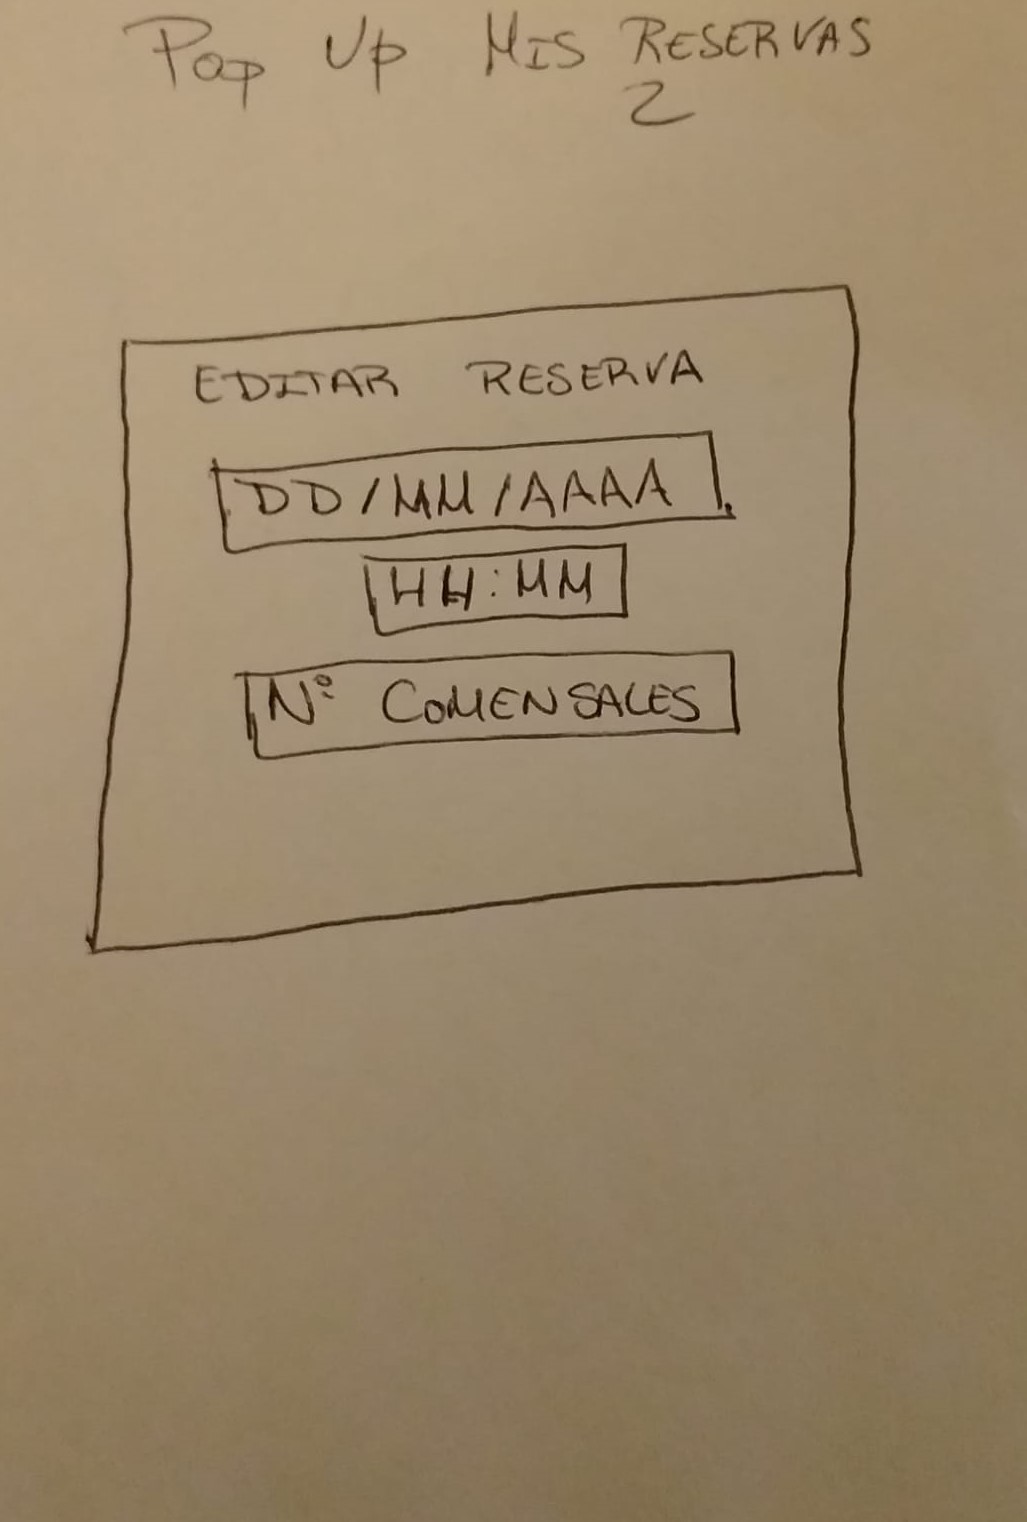 Pop Up MIS RESERVAS
2
EDITAR RESERVA
DD/MM/AAAA
HH:MM
Nº COMENSALES